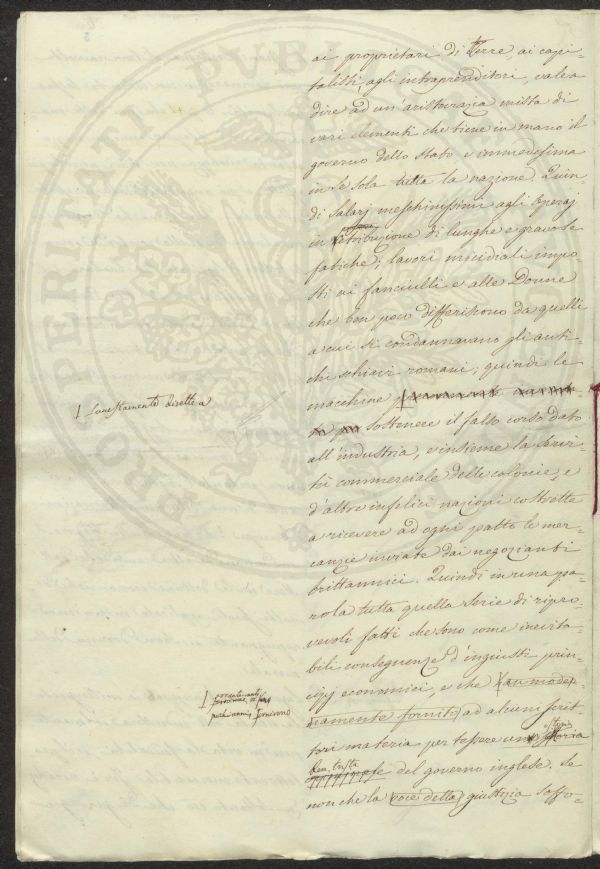 ai proprietari di terre, ai capi-
talisti, agli intraprenditori, vale a
dire ad un'aristocrazia mista di
vari elementi che tiene in mano il
governo dello stato e immedesima
in se sola tutta la nazione. Quin-
di salarj meschinissimi agli operaj
in retribuzione di lunghe e gravose
fatiche; lavori micidiali impo-
sti ai fanciulli e alle Donne
che ben poco differiscono da quelli
a cui si condannavano gli anti-
chi schiavi romani; quindi le
macchine
funestamente dirette a
sostenere il falso corso dato
all'industria, e insieme la servi-
tù commerciale delle colonie, e
d'altre infelici nazioni costrette
a ricevere ad ogni patto le mer-
canzie inviate dai negozianti
brittannici. Quindi in una pa-
rola tutta quella serie di ripro-
vevoli fatti che sono come inevita-
bili conseguenze d'ingiusti prin-
cipj economici, e che
fornirono
ad alcuni scrit-
tori materia per tessere
ben trista
del governo inglese. Se
non che la voce della giustizia soffo-
PROSPERITATI PUBL